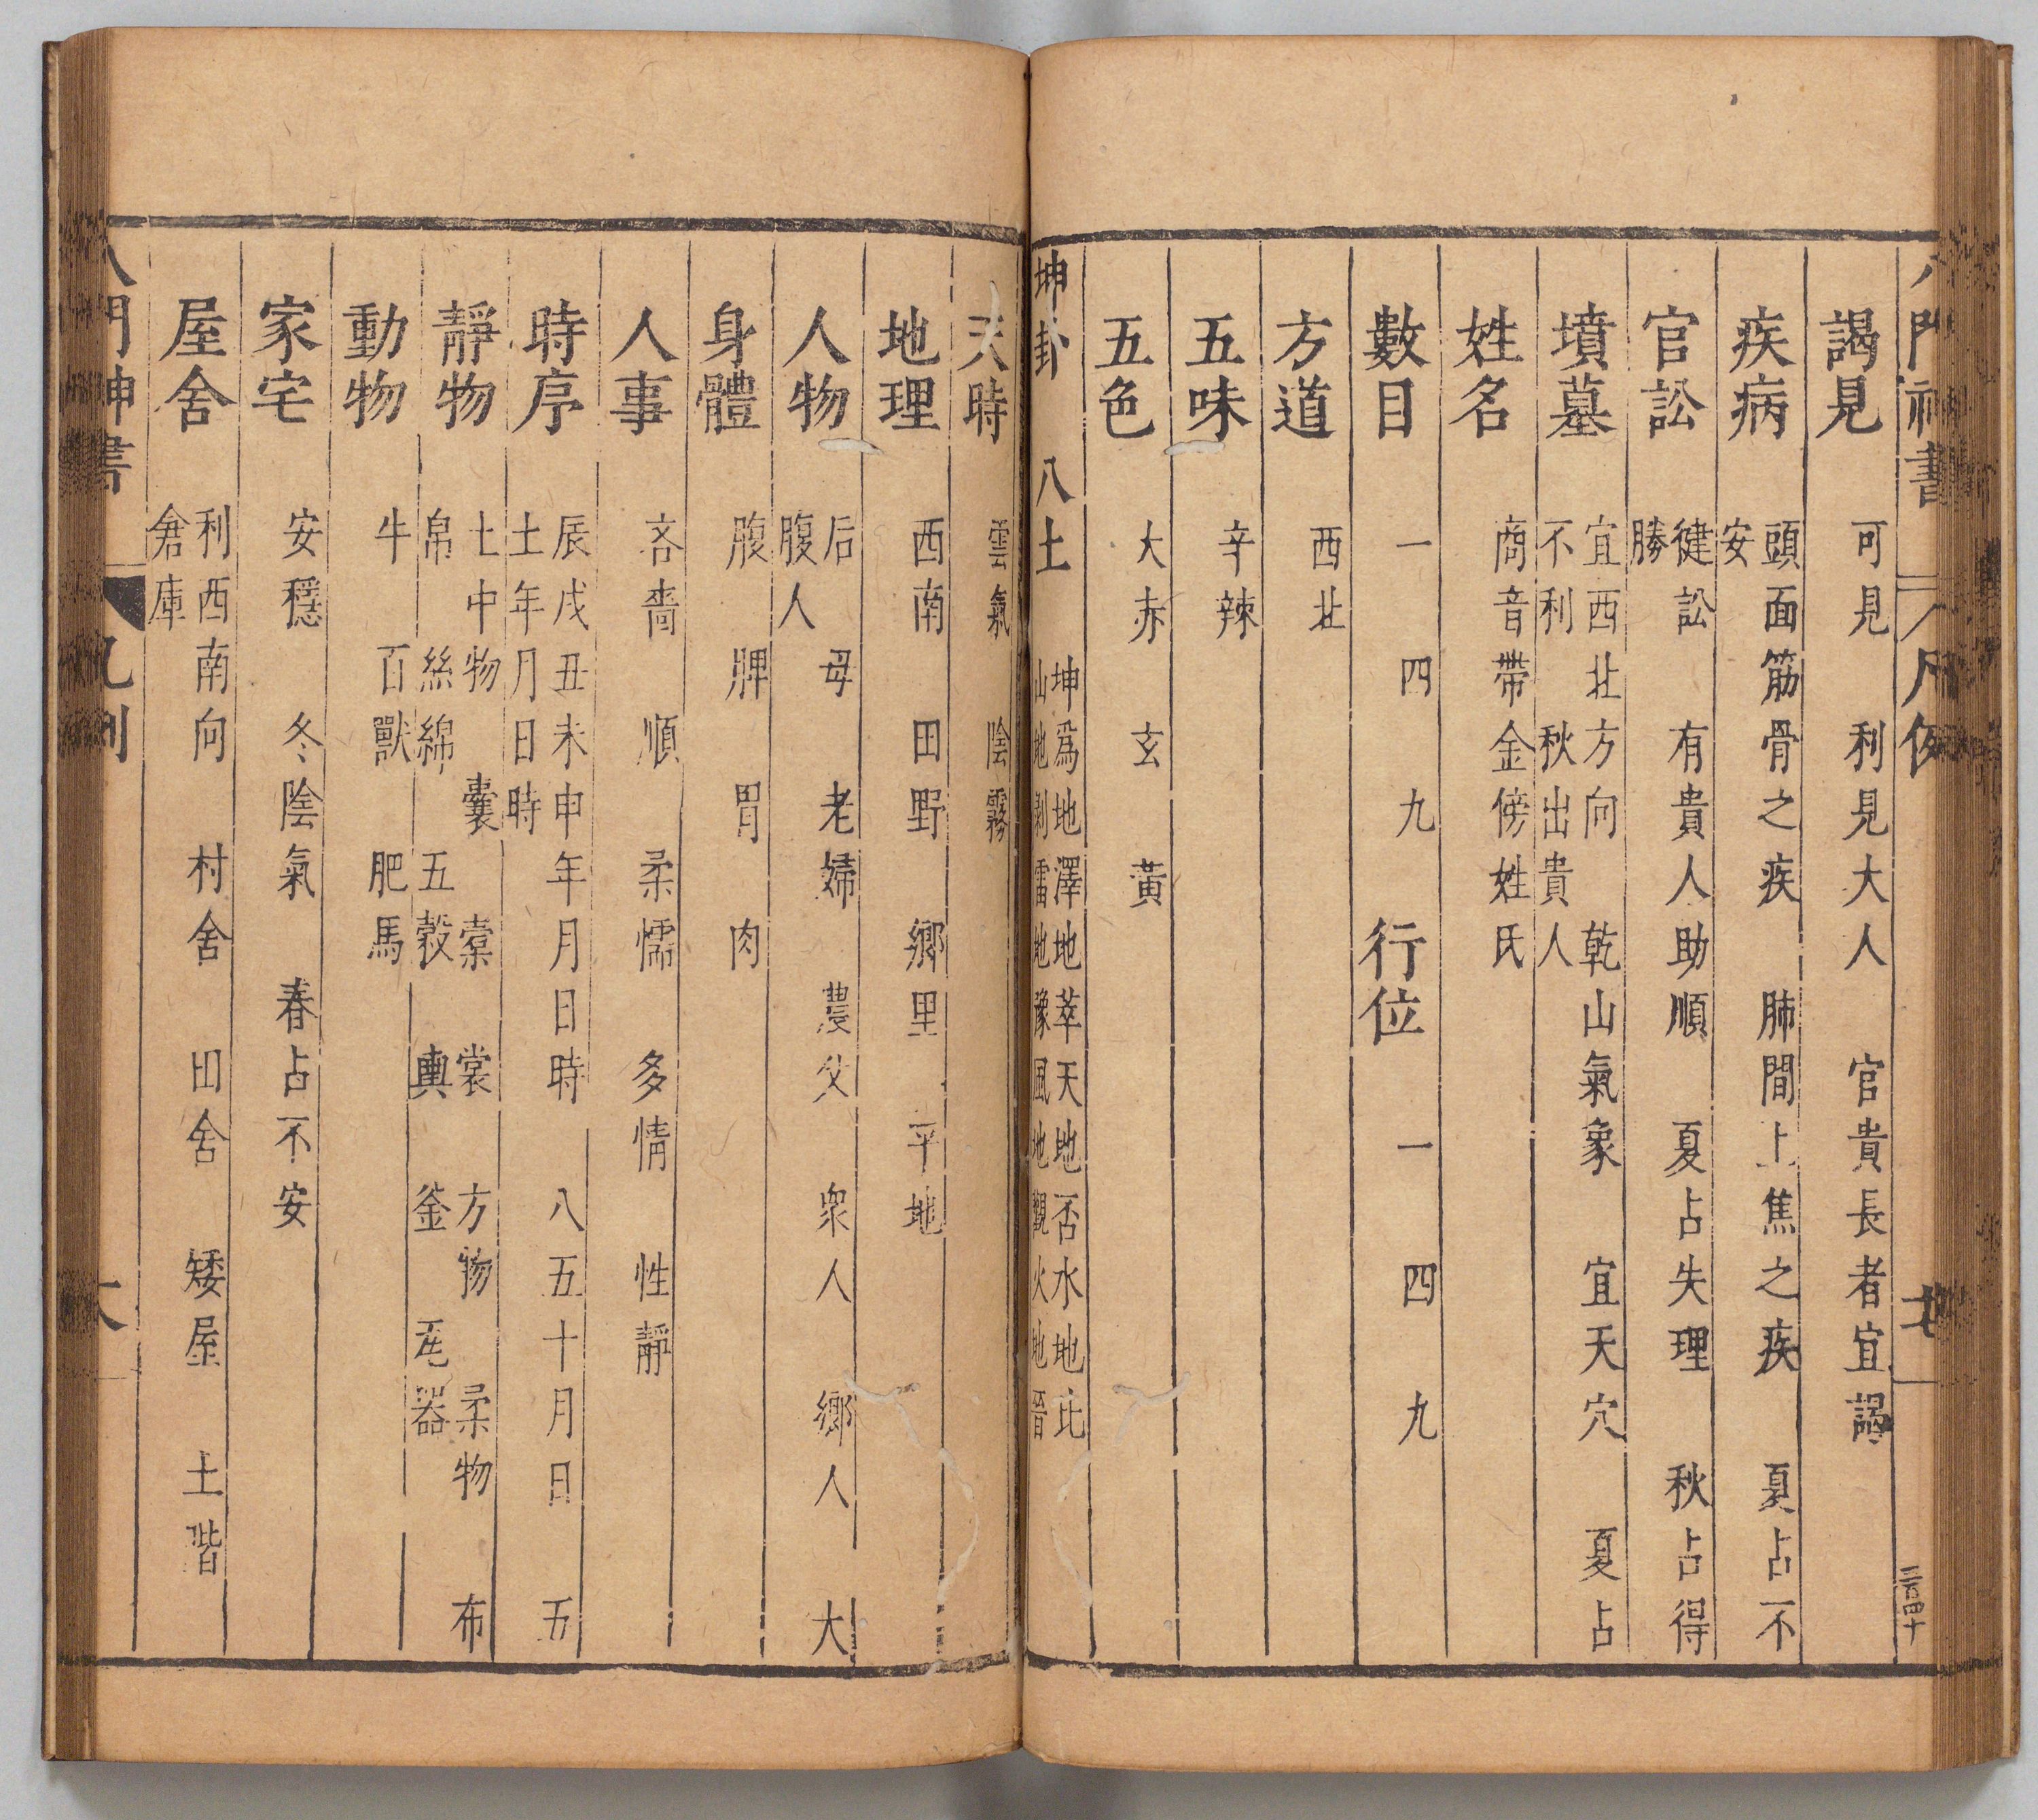 八門神書 凡例
三百四十
謁見 可見 利見大人 官貴長者宜謁
疾病 頭面筋骨之疾 肺間上焦之疾 夏占不
安
官訟 健訟 有貴人助順 夏占失理 秋占得
勝
墳墓 宜西北方向 乾山氣象 宜天穴 夏占
不利 秋出貴人
姓名 商音帶金傍姓氏
數目 一 四 九 行位 一 四 九
方道 西北
五味 辛辣
五色 大赤 玄 黃
坤卦 八土 坤為地 澤地萃 天地否 水地比
山地剝 雷地豫 風地觀 火地晉
天時 雲氣 陰霧
地理 西南 田野 鄉里 平地
人物 后 母 老婦 農父 衆人 鄉人 大
腹人
身體 腹 脾 胃 肉
人事 吝嗇 順 柔懦 多情 性靜
時序 辰戌丑未申年月日時 八五十月日 五
土年月日時
靜物 土中物 囊 裳 方物 柔物 布
帛 絲綿 五穀 輿 釜 瓦器
動物 牛 百獸 肥馬
家宅 安穩 冬陰氣 春占不安
屋舍 利西南向 村舍 田舍 矮屋 土階
倉庫
八門神書 凡例